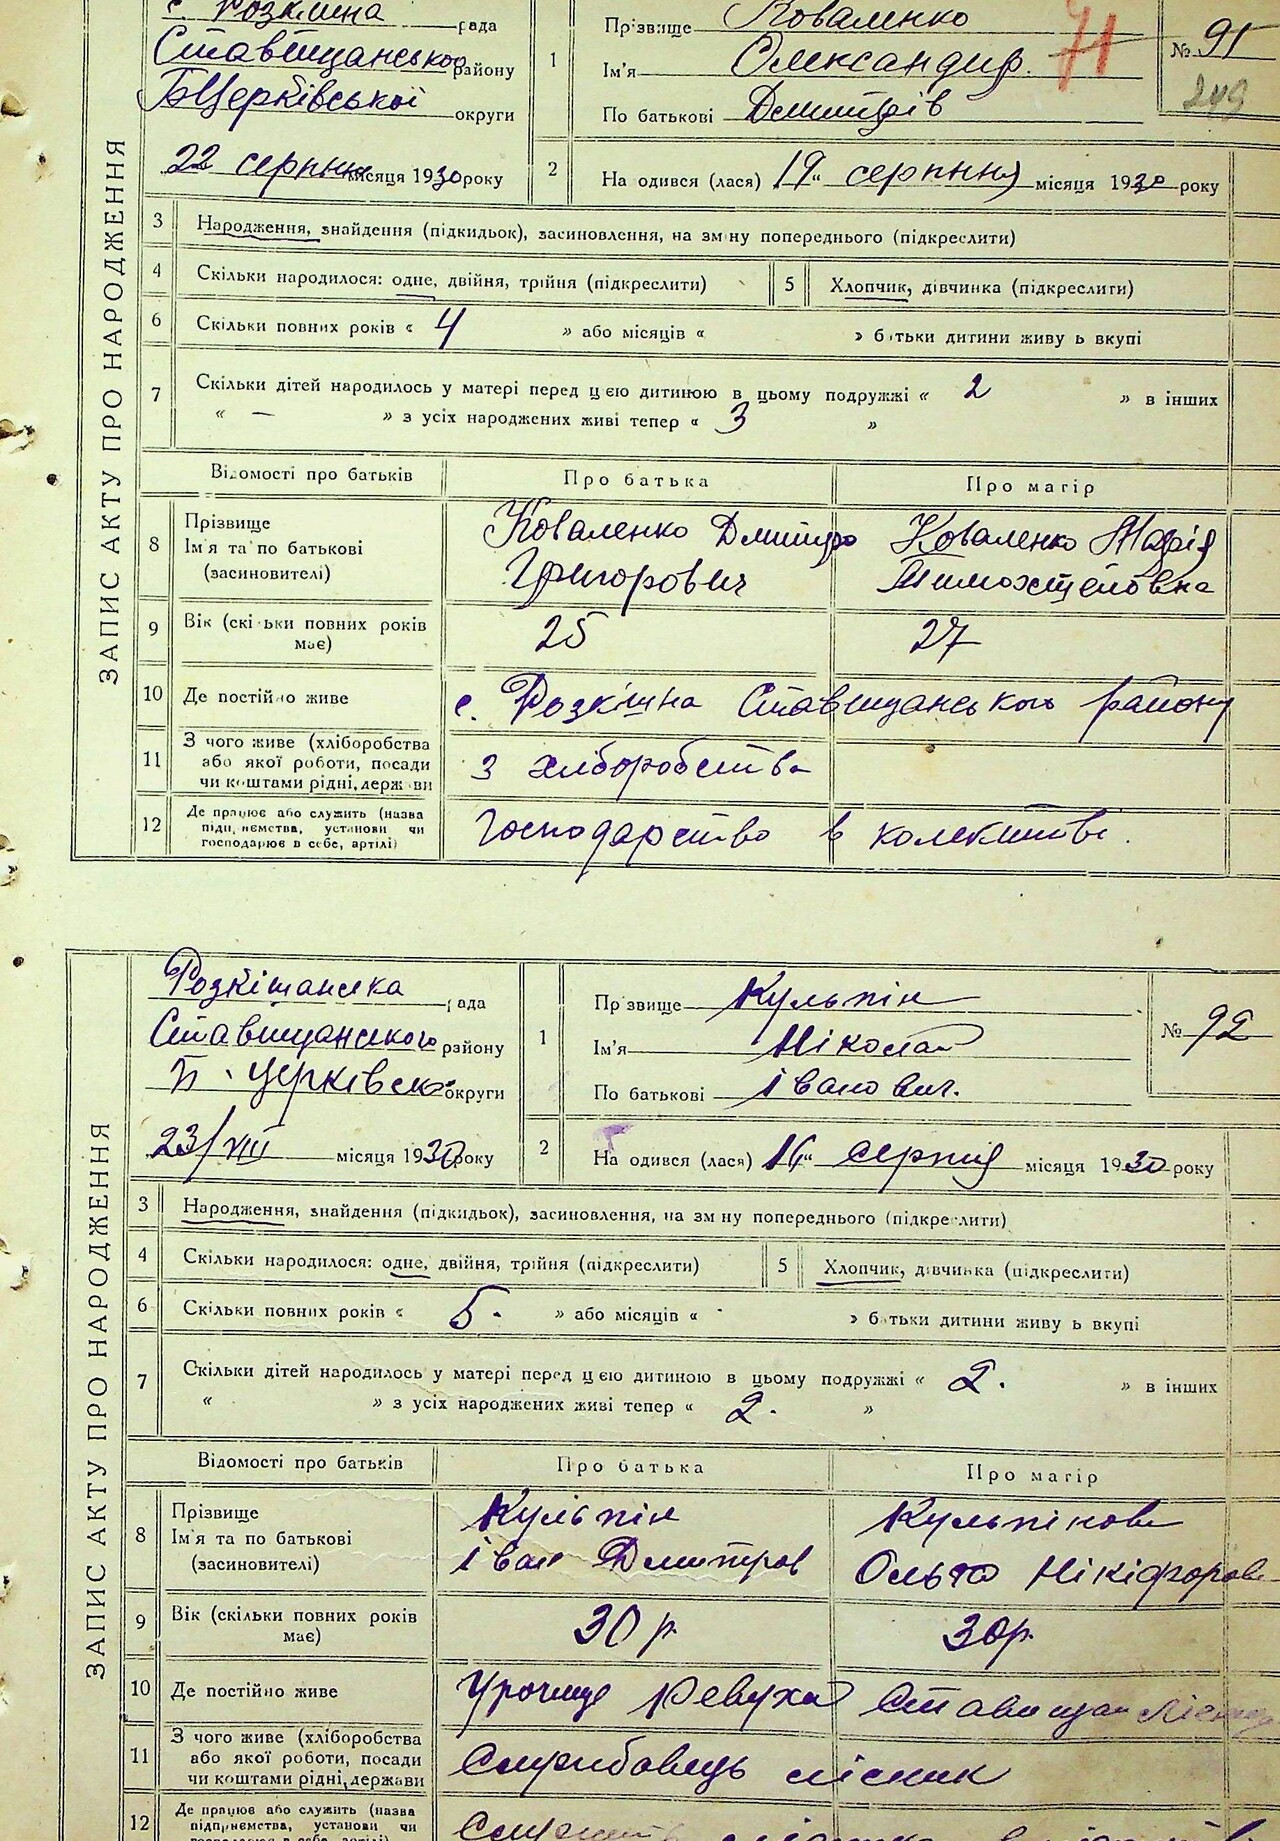 с. Розкішна рада
Ставищанського району
Б Церківської округи
22 серпня місяця 1930 року
1 Прізвище Коваленко
Ім'я Олександр.
По батькові Дмитрів
71
№ 91
249
2 На одився (лася) 19" серпня місяця 1930 року
ЗАПИС АКТУ ПРО НАРОДЖЕННЯ
3 Народження, знайдення (підкидьок), засиновлення, на зм ну попереднього (підкреслити)
4 Скільки народилося: одне, двійня, трійня (підкреслити) 5 Хлопчик, дівчинка (підкреслити)
6 Скільки повних років « 4 » або місяців « » б тьки дитини живу ь вкупі
7 Скільки дітей народилось у матері перед цією дитиною в цьому подружжі « 2 » в інших
« — » з усіх народжених живі тепер « 3 »
Відомості про батьків Про батька Про матір
8 Прізвище
Ім'я та по батькові
(засиновителі)
Коваленко Дмитро
Григорович
Коваленко Марія
9 Вік (скільки повних років має) 25 27
10 Де постійно живе с. Розкішна Ставищанського району
11 З чого живе (хліборобства
або якої роботи, посади
чи коштами рідні, держави
з хліборобства
12 Де працює або служить (назва
підп, иємства, установи чи
господарює в себе, артілі)
Господарство в колективі.
Розкішанська рада
Ставищанського району
Б. Церківськ. округи
23/VIII місяця 1930 року
1 Прізвище Кульпін
Ім'я Ніколай
По батькові Іванович.
№ 92
2 На одився (лася) 16" серпня місяця 1930 року
ЗАПИС АКТУ ПРО НАРОДЖЕННЯ
3 Народження, знайдення (підкидьок), засиновлення, на зм ну попереднього (підкреслити)
4 Скільки народилося: одне, двійня, трійня (підкреслити) 5 Хлопчик, дівчинка (підкреслити)
6 Скільки повних років « 5. » або місяців « » б тьки дитини живу ь вкупі
7 Скільки дітей народилось у матері перед цією дитиною в цьому подружжі « 2. » в інших
« » з усіх народжених живі тепер « 2. »
Відомості про батьків Про батька Про матір
8 Прізвище
Ім'я та по батькові
(засиновителі)
Кульпін
Іван Дмитров
Кульпінова
Ольга Нікіфоров
9 Вік (скільки повних років має) 30 р. 30 р.
10 Де постійно живе Урочище Ревуха Ставищан
11 З чого живе (хліборобства
або якої роботи, посади
чи коштами рідні, держави
Службовець лісник
12 Де працює або служить (назва
підприємства, установи чи